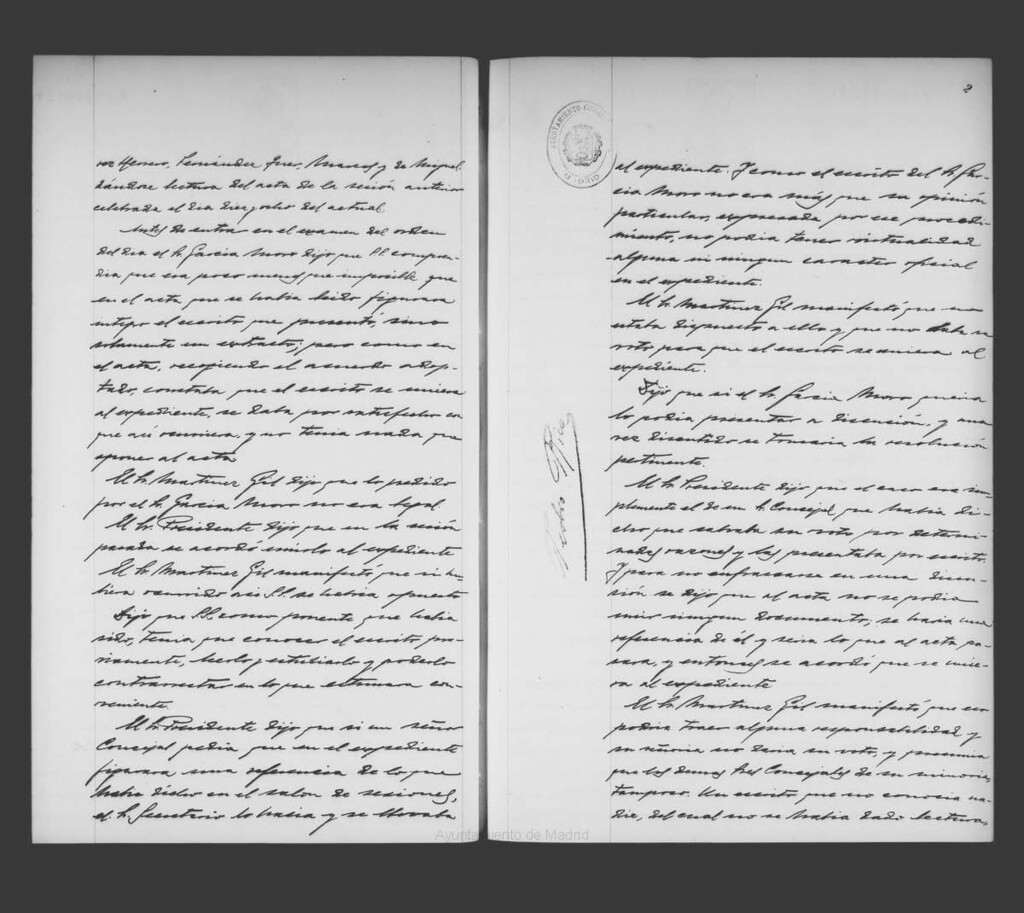 Herrero, Fernández
dándose lectura del acta de la sesión anterior
celebrada el día diez y ocho del actual.
Antes de entrar en el examen del orden
del día el Sr. García Moro dijo que S.S. compren-
día que era poco menos que imposible que
en el acta que se había leído figurara
íntegro el escrito que presentó, sino
solamente un extracto; pero como en
el acta, recogiendo el acuerdo adop-
tado, constaba que el escrito se uniera
al expediente, se daba por satisfecho con
que así ocurriera, y no tenía nada que
oponer al acta.
El Sr. Martínez Gil dijo que lo pedido
por el Sr. García Moro no era legal.
El Sr. Presidente dijo que en la sesión
pasada se acordó unirlo al expediente
El Sr. Martínez Gil manifestó que si hu-
biera ocurrido así S.S. se hubiera opuesto
Dijo que S.S. como ponente que había
sido, tenía que conocer el escrito pre-
viamente, leerlo, estudiarlo y poderlo
contrarrestar en lo que estimara con-
veniente.
El Sr. Presidente dijo que si un señor
Concejal pedía que en el expediente
figurara una referencia de lo que
había dicho en el salón de sesiones,
el Sr. Secretario lo hacía y se llevaba
2
AYUNTAMIENTO
al expediente. Y como el escrito del Sr. Gar-
cía Moro no era más que su opinión
particular, expresada por ese procedi-
miento, no podía tener virtualidad
alguna ni ningún carácter oficial
en el expediente.
El Sr. Martínez Gil manifestó que no
estaba dispuesto a ello y que no daba su
voto para que el escrito se uniera al
expediente.
Dijo que si el Sr. García Moro quería
lo podía presentar a discusión, y una
vez discutido se tomaría la resolución
pertinente.
El Sr. Presidente dijo que el caso era sim-
plemente el de un Sr. Concejal que había di-
cho que salvaba su voto por determi-
nadas razones y las presentaba por escrito.
Y para no enfrascarse en una discu-
sión se dijo que al acta no se podía
unir ningún documento, se haría una
referencia de él y sería lo que al acta pa-
sara, y entonces se acordó que se unie-
ra al expediente
El Sr. Martínez Gil manifestó que eso
podría traer alguna responsabilidad y
su señoría no daría su voto, y presumía
que los demás Sres. Concejales de su minoría
tampoco. Un escrito que no conocía na-
die, del cual no se había dado lectura,
Ayuntamiento de Madrid